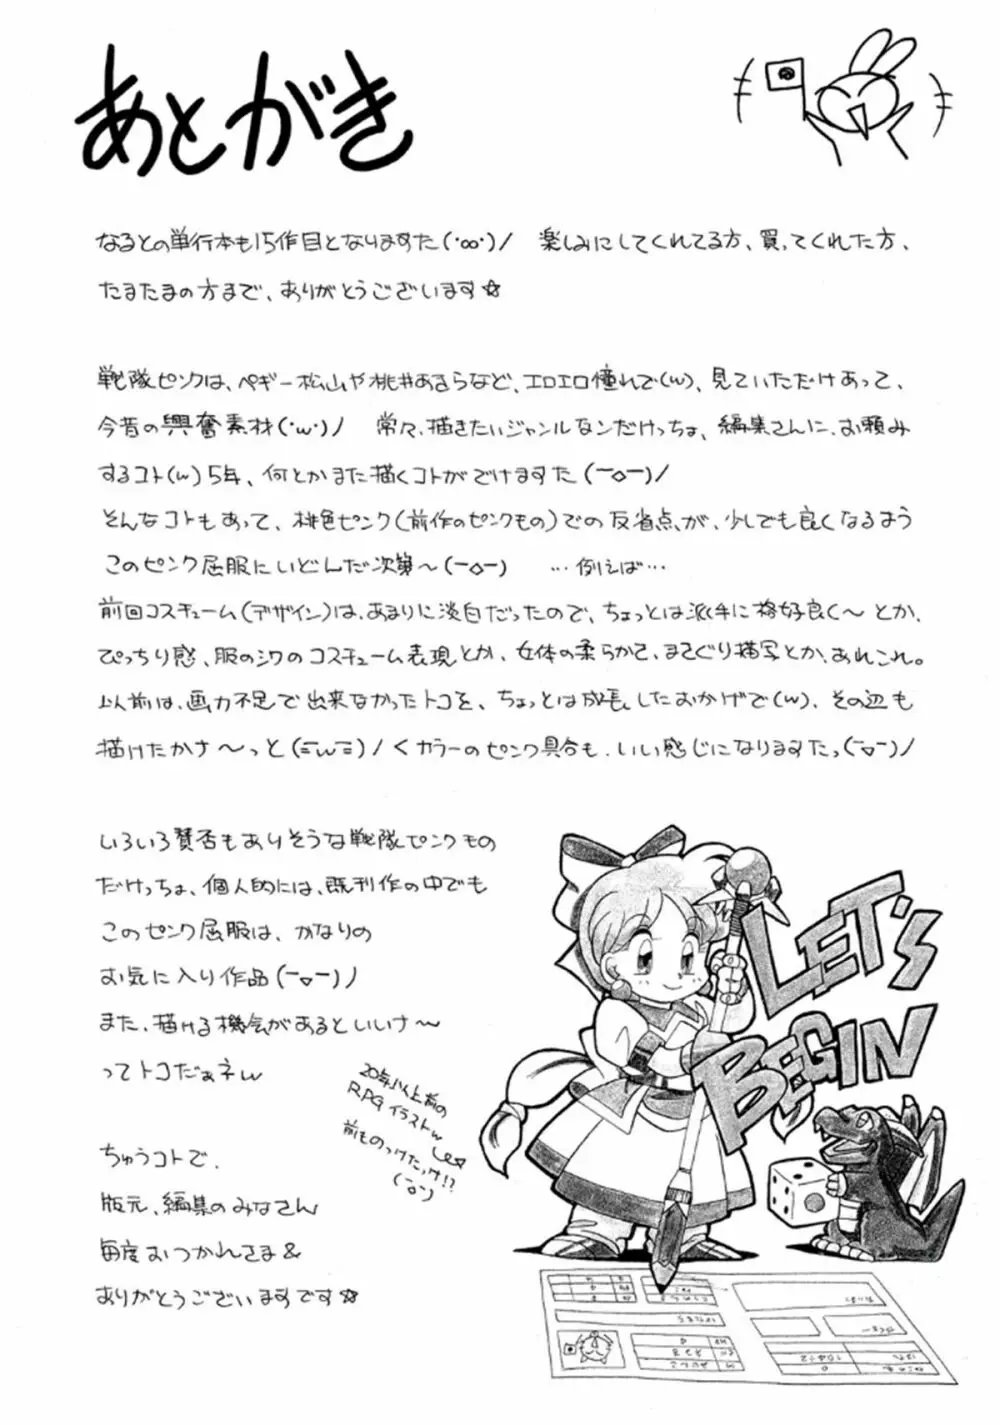 あとがき
なるとの単行本も15作目となりますた(・ω・)ノ 楽しみにしてくれてる方、買ってくれた方、
たまたまの方まで、ありがとうございます☆
戦隊ピンクは、ペギー松山や桃井あきらなど、エロエロ憧れで(w)、見ていただけあって、
今昔の興奮素材(・w・)ノ 常々、描きたいジャンルなンだけっちょ、編集さんに、お頼み
するコト(w)5年、何とかまた描くコトがでけますた(￣◇￣)ノ
そんなコトもあって、桃色ピンク(前作のピンクもの)での反省点が、少しでも良くなるよう
このピンク屈服にいどんだ次第〜(￣◇￣) …例えば…
前回コスチューム(デザイン)は、あまりに淡白だったので、ちょっとは派手に格好良く〜とか、
ぴっちり感、服のシワのコスチューム表現とか、女体の柔らかさ、まさぐり描写とか、あれこれ。
以前は、画力不足で出来なかったトコを、ちょっとは成長したおかげで(w)、その辺も
描けたかナ〜っと(ﾐ￣w￣ﾐ)ノくカラーのピンク具合も、いい感じになりますたっ(￣▽￣)ノ
いろいろ賛否もありそうな戦隊ピンクもの
だけっちょ、個人的には、既刊作の中でも
このピンク屈服は、かなりの
お気に入り作品(￣▽￣)ノ
また、描ける機会があるといいナ〜
ってトコだぁネw
20年以上前の
RPGイラストw
前ものっけたっけ!?
(￣o￣)
ちゅうコトで、
版元、編集のみなさん
毎度おつかれさま&
ありがとうございますです☆
LET'S
BEGIN